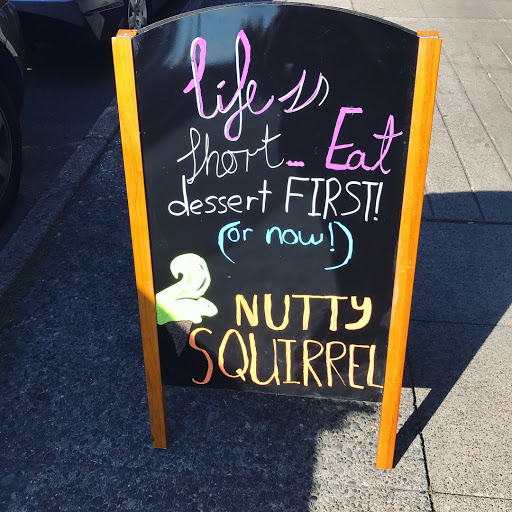 life is
short... Eat
dessert FIRST!
(or now!)
NUTTY
SQUIRREL